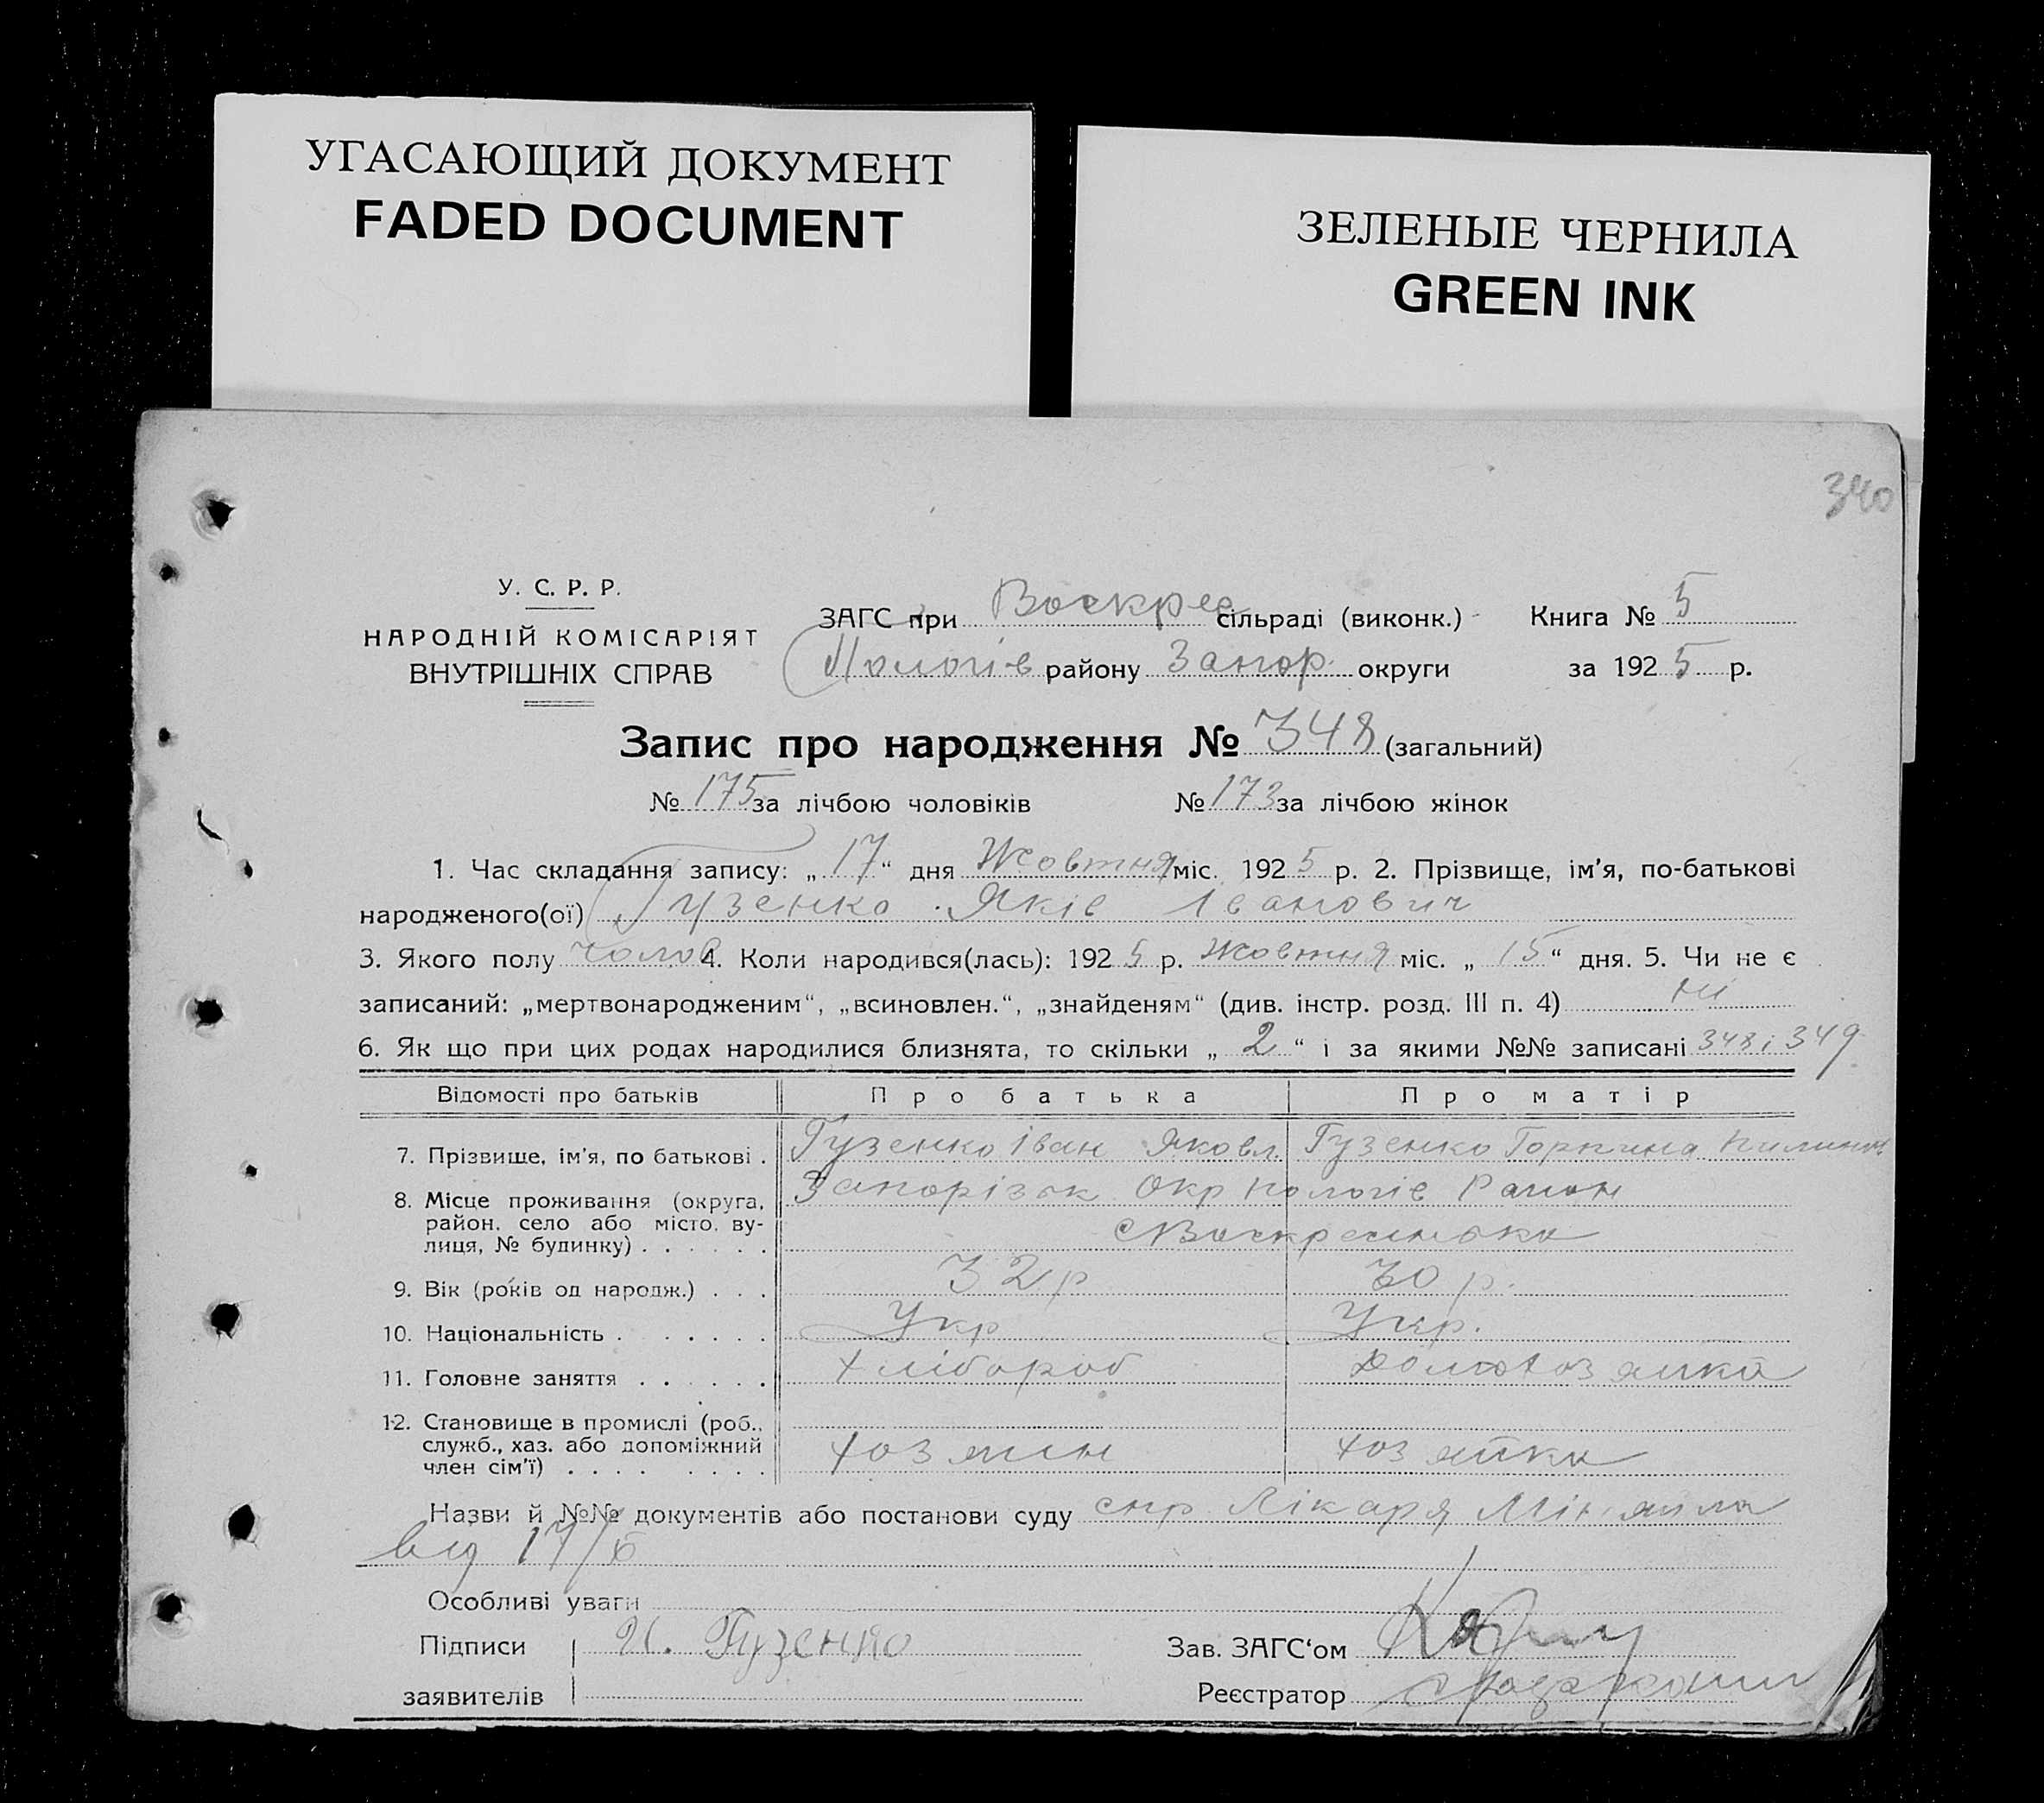 УГАСАЮЩИЙ ДОКУМЕНТ
FADED DOCUMENT
ЗЕЛЕНЫЕ ЧЕРНИЛА
GREEN INK
340
У. С. Р. Р.
НАРОДНІЙ КОМІСАРІЯТ
ВНУТРІШНІХ СПРАВ
ЗАГС при Воскрес сільраді (виконк.) Книга № 5
Пологів району Запор. округи за 1925 р.
Запис про народження № 348 (загальний)
№ 175 за лічбою чоловіків № 173 за лічбою жінок
1. Час складання запису: „17“ дня Жовтня міс. 1925 р. 2. Прізвище, ім'я, по-батькові
народженого(ої) Гузенко Яків Іванович
3. Якого полу чолов 4. Коли народився(лась): 1925 р. Жовтня міс. „15“ дня. 5. Чи не є
записаний: „мертвонародженим“, „всиновлен.“, „знайденям“ (див. інстр. розд. III п. 4) ні
6. Як що при цих родах народилися близнята, то скільки „2“ і за якими №№ записані 348 і 349
Відомості про батьків Про батька Про матір
7. Прізвище, ім'я, по батькові . Гузенко Іван Яковл. Гузенко Горпина
8. Місце проживання (округа, Запорізьк Окр Пологів Район
район, село або місто, ву-
лиця, № будинку) . . . . . . с Воскресенька
9. Вік (років од народж.) . . . 32 р 30 р.
10. Національність . . . . . . Укр Укр.
11. Головне заняття . . . . . . хлібороб домохозяйка
12. Становище в промислі (роб.,
служб., хаз. або допоміжний хозяин хозяйка
член сім'ї) . . . . . . . .
Назви й №№ документів або постанови суду спр Лікаря
від 17/X
Особливі уваги
Підписи И. Гузенко Зав. ЗАГС‘ом
заявителів Реєстратор